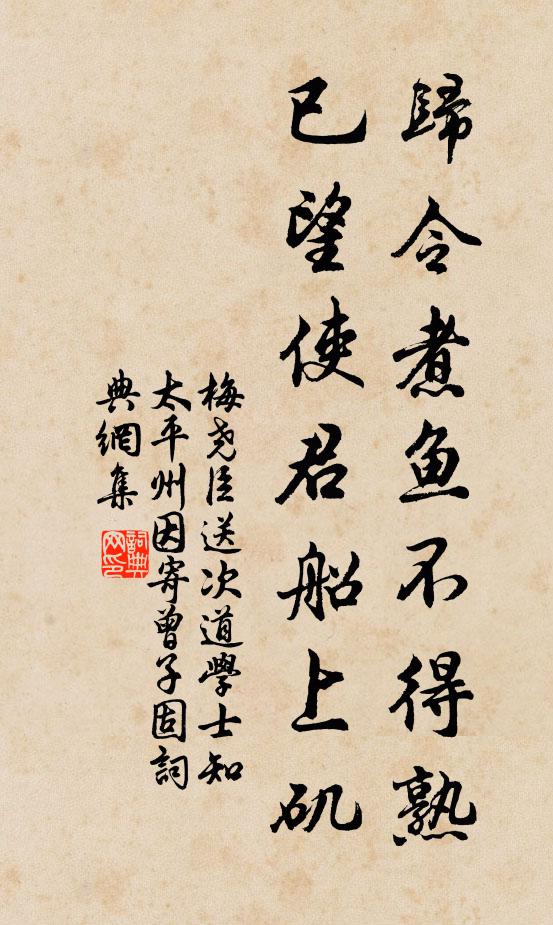 歸令煮魚不得熟
已望使君船上矶
梅尧臣送次道學士知
太平州因寄曾子固詞
典網集
詞典網印